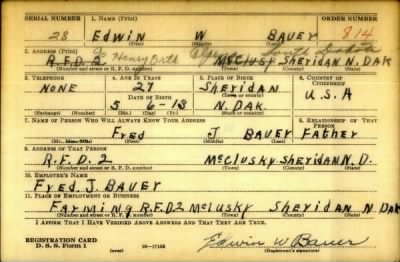 SERIAL NUMBER 1. NAME (Print) ORDER NUMBER
28 EDWIN W BAUER 814
(First) (Middle) (Last)
2. ADDRESS (Print) % Henry Orth South Dakota
R.F.D. 2 McCLUSKY SHERIDAN N. DAK
(Number and street or R. F. D. number) (Town) (County) (State)
3. TELEPHONE 4. AGE IN YEARS 5. PLACE OF BIRTH 6. COUNTRY OF CITIZENSHIP
NONE 27 SHERIDAN U.S.A
DATE OF BIRTH (Town or county)
5 6-13 N. DAK.
(Exchange) (Number) (Mo.) (Day) (Yr.) (State or country)
7. NAME OF PERSON WHO WILL ALWAYS KNOW YOUR ADDRESS 8. RELATIONSHIP OF THAT PERSON
FRED J BAUER FATHER
(Mr., Mrs., Miss) (First) (Middle) (Last)
9. ADDRESS OF THAT PERSON
R.F.D. 2 McCLUSKY SHERIDAN N. D.
(Number and street or R. F. D. number) (Town) (County) (State)
10. EMPLOYER'S NAME
FRED. J. BAUER
11. PLACE OF EMPLOYMENT OR BUSINESS
FARMING R.F.D2 McLUSKY SHERIDAN N. DAK
(Number and street or R. F. D. number) (Town) (County) (State)
I AFFIRM THAT I HAVE VERIFIED ABOVE ANSWERS AND THAT THEY ARE TRUE.
REGISTRATION CARD
D. S. S. Form 1 (over) 16-17105 Edwin W Bauer
(Registrant's signature)